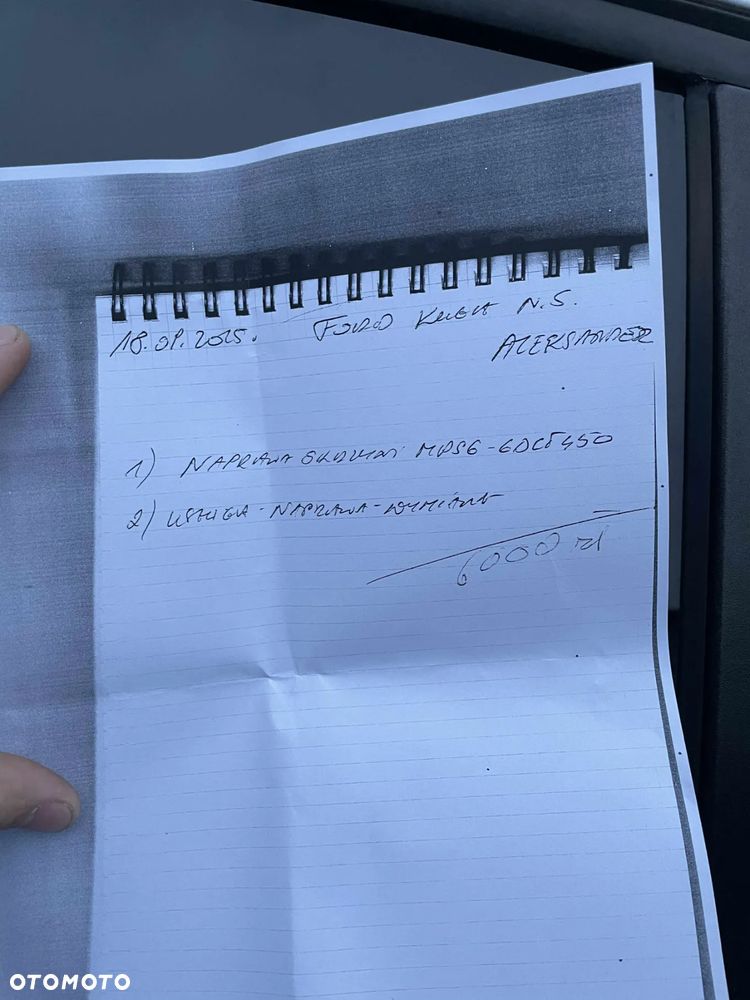 18.09.2025. FORD KUGA N.S.
ALEKSANDER
1) NAPRAWA SKRZYNI MPS6-6DCT450
2) USŁUGA-NAPRAWA-WYMIANA
6000 zł
OTOMOTO